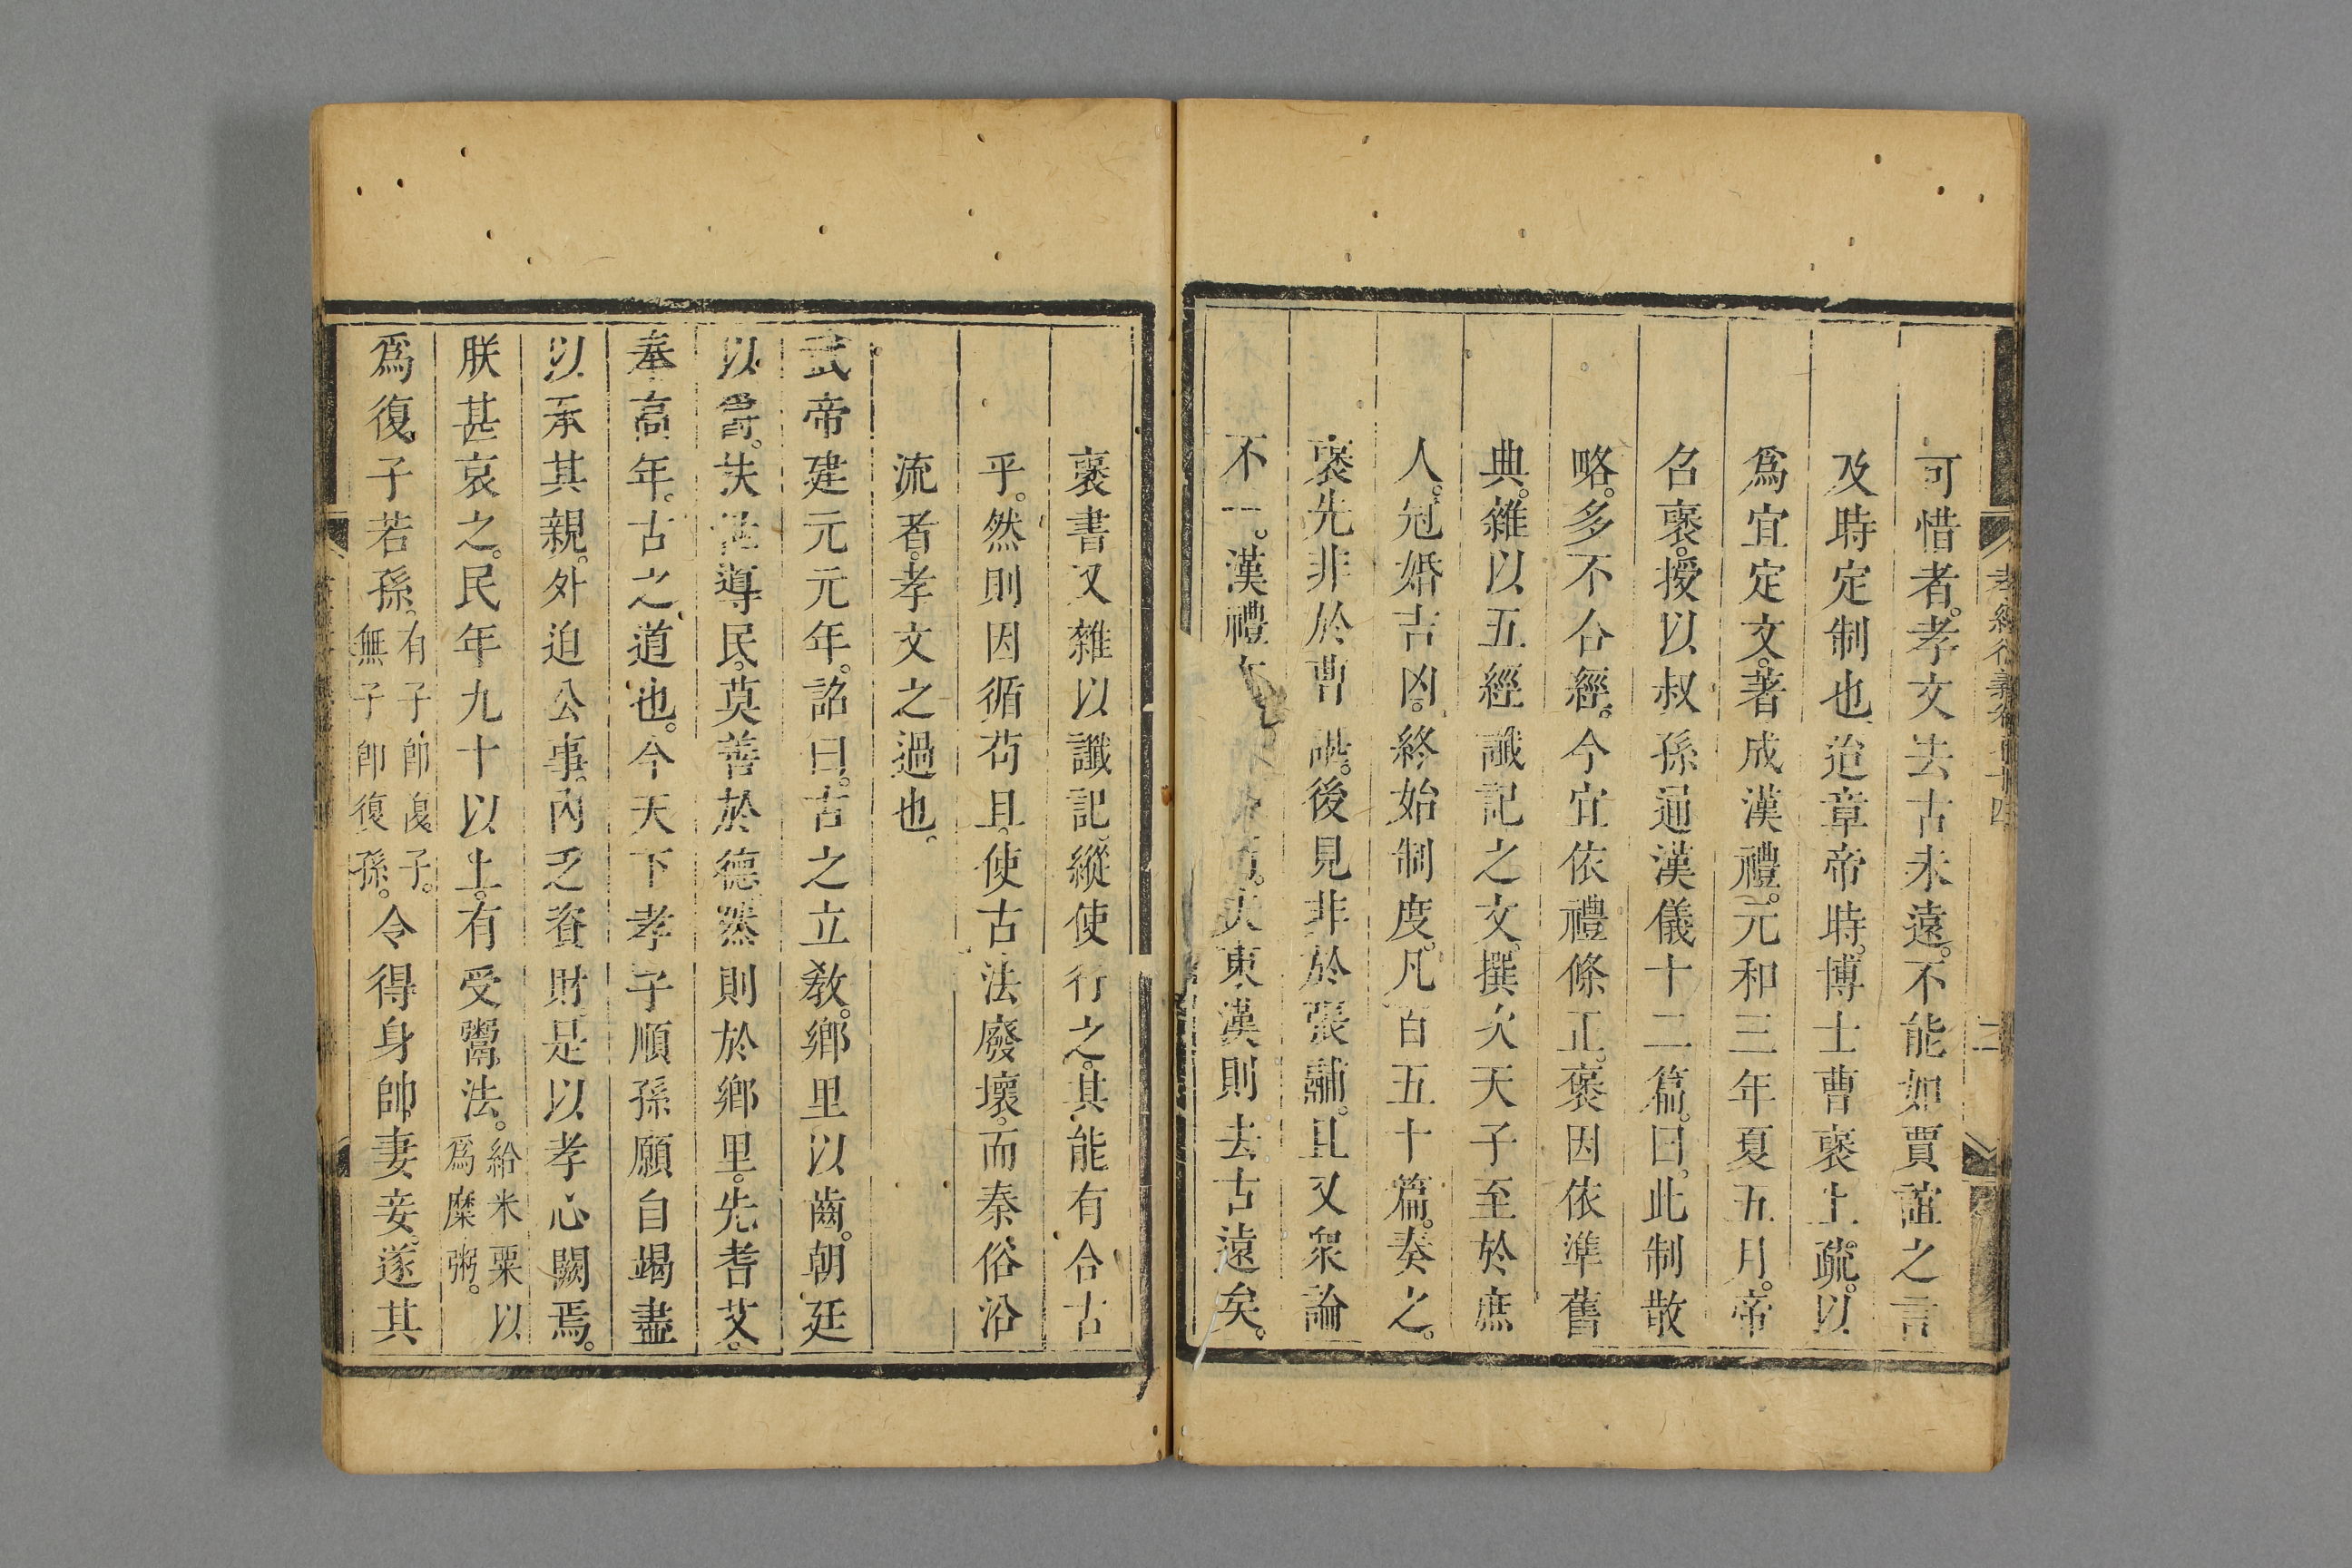 可惜者。孝文去古未遠。不能如賈誼之言
及時定制也。迨章帝時。博士曹褒上疏。以
爲宜定文。著成漢禮。元和三年夏五月。帝
召褒。授以叔孫通漢儀十二篇。曰。此制散
略。多不合經。今宜依禮條正。褒因依準舊
典。雜以五經讖記之文。撰次天子至於庶
人。冠婚吉凶。終始制度。凡百五十篇。奏之。
褒先非於曹誥。後見非於張酺。且又衆論
不一。漢禮 東漢則去古遠矣。
褒書又雜以讖記。縱使行之。其能有合古
乎。然則因循苟且。使古法廢壞。而秦俗沿
流者。孝文之過也。
武帝建元元年。詔曰。古之立教。鄉里以齒。朝廷
以爵。扶世導民。莫善於德。然則於鄉里。先耆艾。
奉高年。古之道也。今天下孝子順孫。願自竭盡
以承其親。外迫公事。內乏資財。是以孝心闕焉。
朕甚哀之。民年九十以上。有受鬻法。給米粟以爲糜粥。
爲復子若孫。有子卽復子。無子卽復孫。令得身帥妻妾。遂其